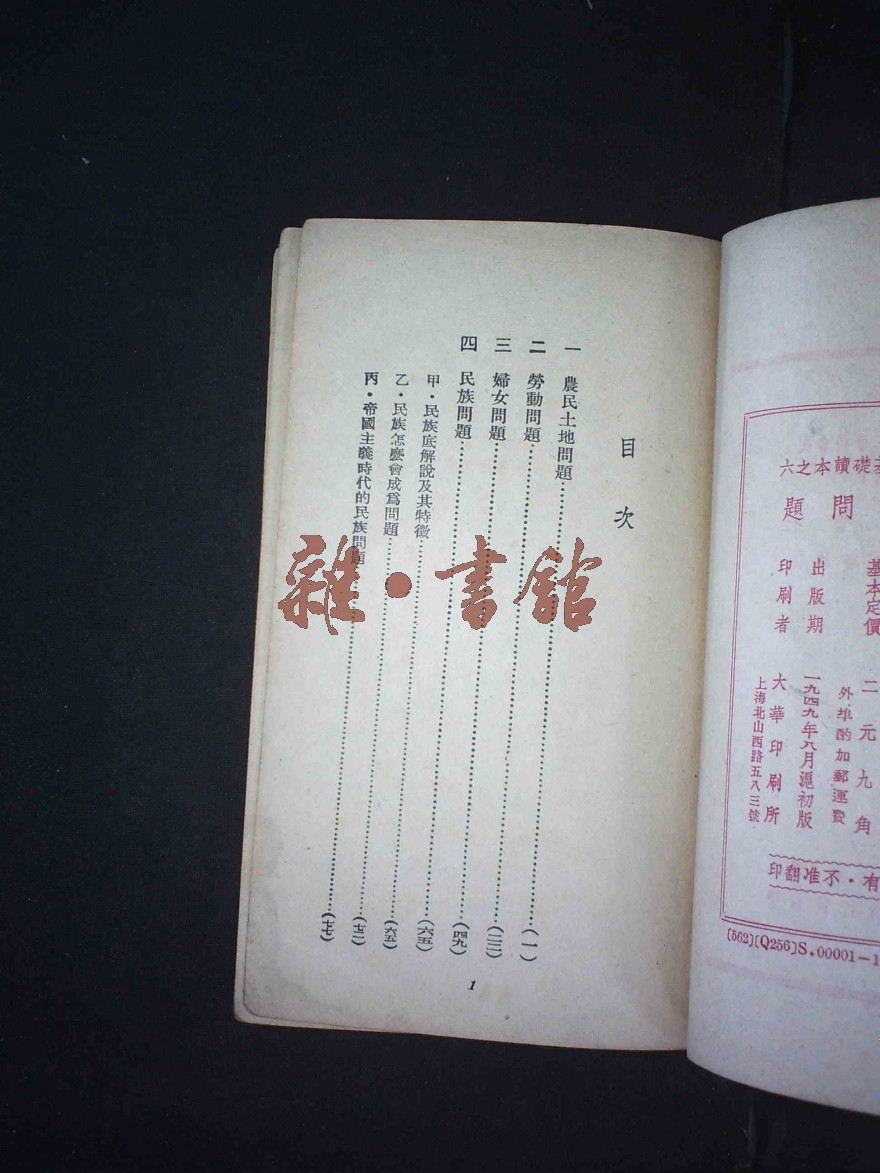 礎讀本之六
問題
基本定價 二元九角
外埠酌加郵運費
出版期 一九四九年八月滬初版
印刷者 大華印刷所
上海北山西路五八三號
有·不准翻印
[562](Q256)S.00001-1
目次
一 農民土地問題……(一)
二 勞動問題……(二三)
三 婦女問題……(四九)
四 民族問題……(六五)
甲·民族底解說及其特徵……(六五)
乙·民族怎麼會成爲問題……(七二)
丙·帝國主義時代的民族問題……(七七)
1
雜·書館